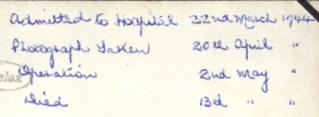 Admitted to Hospital 22nd March 1944
Photograph Taken 20th April "
Operation 2nd May "
Died 13th " "